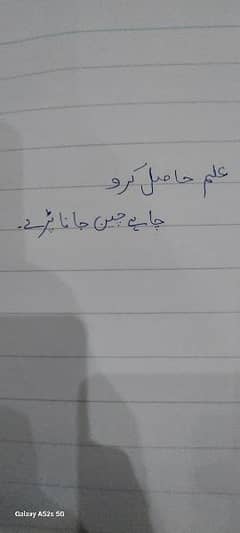 علم حاصل کرو
چاہے چین جانا پڑے۔
Galaxy A52s 5G